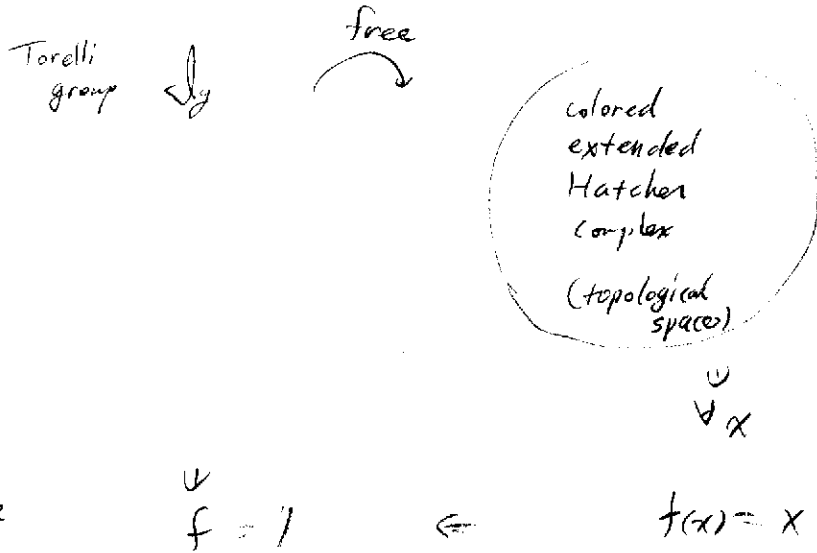 free
Torelli
group 𝓘g
colored
extended
Hatcher
complex
(topological
space)
∪
∀x
∪
f = 1 ⇐ f(x) = x